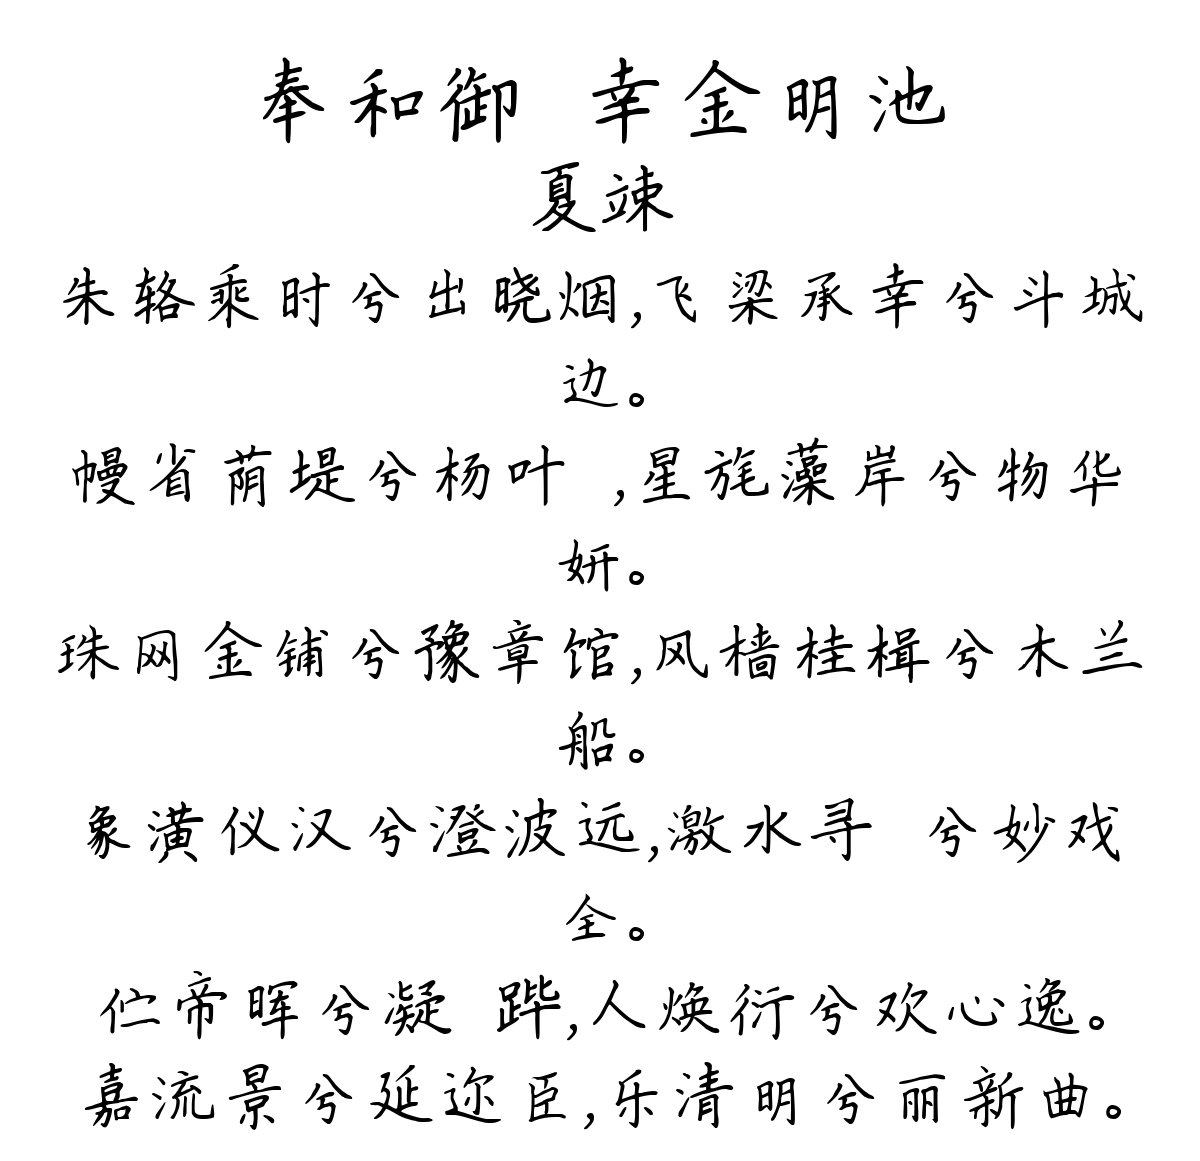 奉和御 幸金明池
夏竦
朱辂乘时兮出晓烟,飞梁承幸兮斗城
边。
幔省荫堤兮杨叶 ,星旄藻岸兮物华
妍。
珠网金铺兮豫章馆,风樯桂楫兮木兰
船。
象潢仪汉兮澄波远,激水寻 兮妙戏
全。
伫帝晖兮凝 跸,人焕衍兮欢心逸。
嘉流景兮延迩臣,乐清明兮丽新曲。